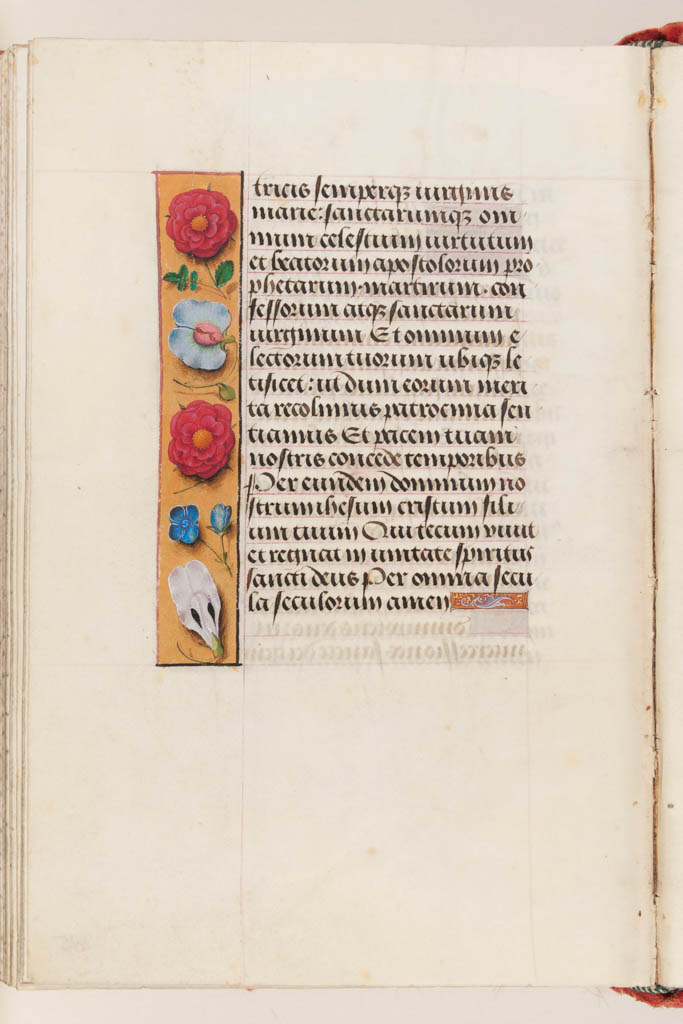 tricis semperqꝫ uirginis
marie: sanctarumqꝫ om
nium celestium uirtutum
et beatorum apostolorum pro
phetarum. martirum. con
fessorum atqꝫ sanctarum
uirginum Et omnium e
lectorum tuorum ubiqꝫ le
tificet: ut dum eorum meri
ta recolimus patrocinia sen
tiamus Et pacem tuam
nostris concede temporibus
Per eundem dominum no
strum ihesum cristum fili
um tuum Qui tecum viuit
et regnat in unitate spiritus
sancti deus Per omnia secu
la seculorum amen